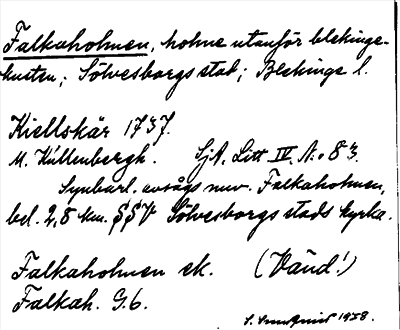 Falkaholmen, holme utanför blekinge-
kusten; Sölvesborgs stad; Blekinge l.
Kiellskär 1737.
M. Küllenbergh. SjA. Litt IV No 83.
Synbarl. avsågs nuv. Falkaholmen,
bel. 2,8 km. SSV Sölvesborgs stads kyrka.
Falkaholmen ek. (Vänd!)
Falkah. G.6.
1938.